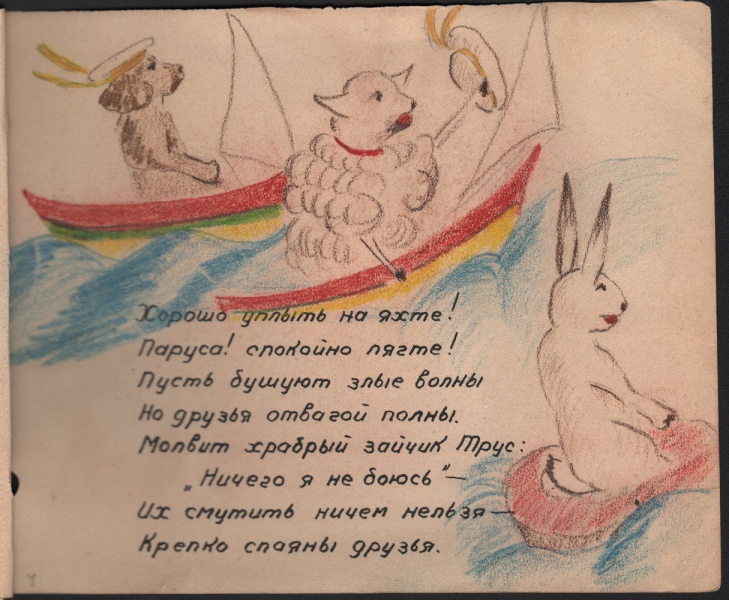 Хорошо уплыть на яхте!
Паруса! спокойно лягте!
Пусть бушуют злые волны
Но друзья отвагой полны.
Молвит храбрый зайчик Трус:
„Ничего я не боюсь"—
Их смутить ничем нельзя—
Крепко спаяны друзья.
4